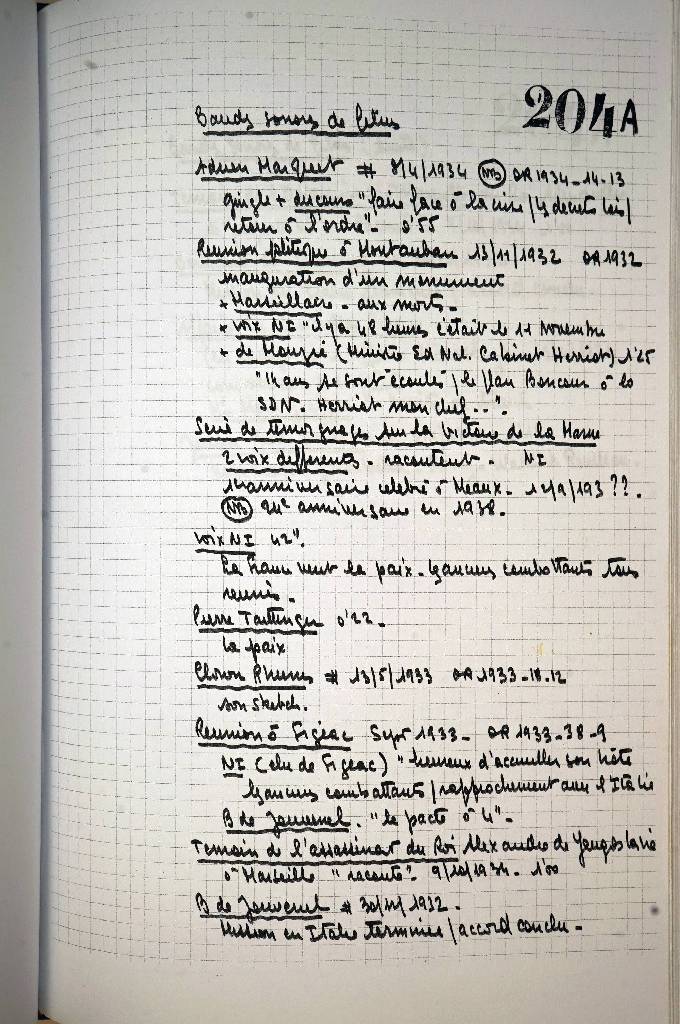 204A
Bandes sonores de films
Adrien Marquet # 8/4/1934 (NB) GR 1934-14-13
gingle + discours "faire face à la crise / 4 decrets lois /
retour à l'ordre". 0'55
Reunion politique à Montauban 13/11/1932 GR 1932
inauguration d'un monument
+ Marseillaise - aux morts -
+ voix NI "il y a 48 heures c'était le 11 Novembre
+ de Monzie (Ministre Ed Nat. Cabinet Herriot) 1'25
"14 ans se sont écoulés / le Paul Boncour à la
SDN. Herriot mon chef..".
Serie de temoignages sur la Victoire de la Marne
2 voix differentes - racontent - NI
anniversaire celebré à Meaux - 12/9/193??.
(NB) 24e anniversaire en 1938.
Voix NI 42".
La France veut la paix - les anciens combattants tous
reunis.
Pierre Taittinger 0'22 -
la paix
Clown Rhum # 13/5/1933 GR 1933-18-12
son sketch.
Reunion à Figeac Sept 1933 - GR 1933-38-9
NI (elu de Figeac) "heureux d'accueillir son hôte
les anciens combattants / rapprochement avec l'Italie
B de Jouvenel. "le pacte à 4" -
Temoin de l'assassinat du Roi Alexandre de Yougoslavie
à Marseille "raconte". 9/10/1934. 1'00
B de Jouvenel # 1932.
Mission en Italie terminée / accord conclu -